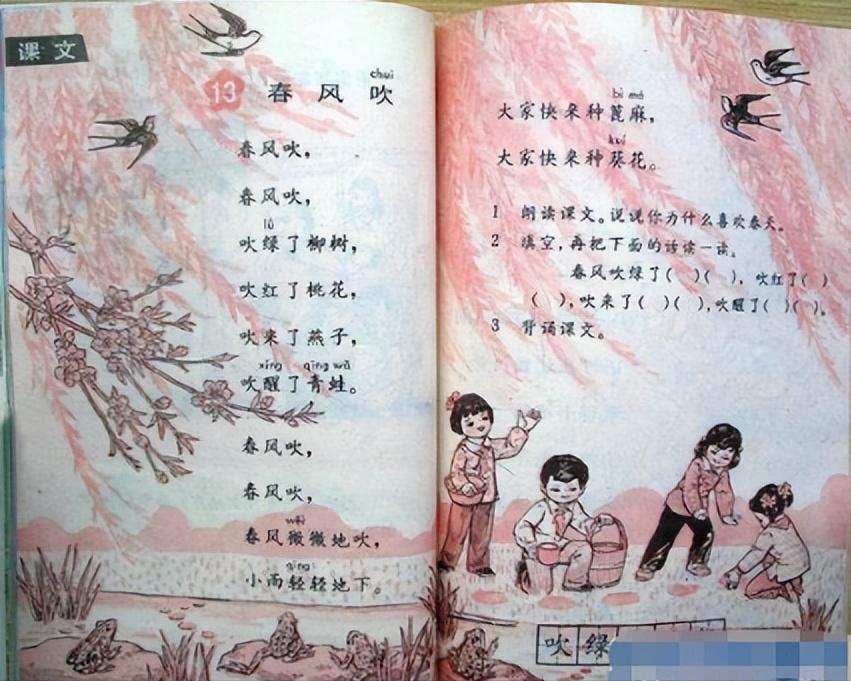 课文
chuī
13 春风吹
春风吹，
春风吹，
lǜ
吹绿了柳树，
吹红了桃花，
吹来了燕子，
xǐng qīng wā
吹醒了青蛙。
春风吹，
春风吹，
wēi
春风微微地吹，
qīng
小雨轻轻地下。
bì má
大家快来种蓖麻，
kuí
大家快来种葵花。
1 朗读课文。说说你为什么喜欢春天。
2 填空，再把下面的话读一读。
春风吹绿了( )( )，吹红了( )
( )，吹来了( )( )，吹醒了( )( )。
3 背诵课文。
吹 绿